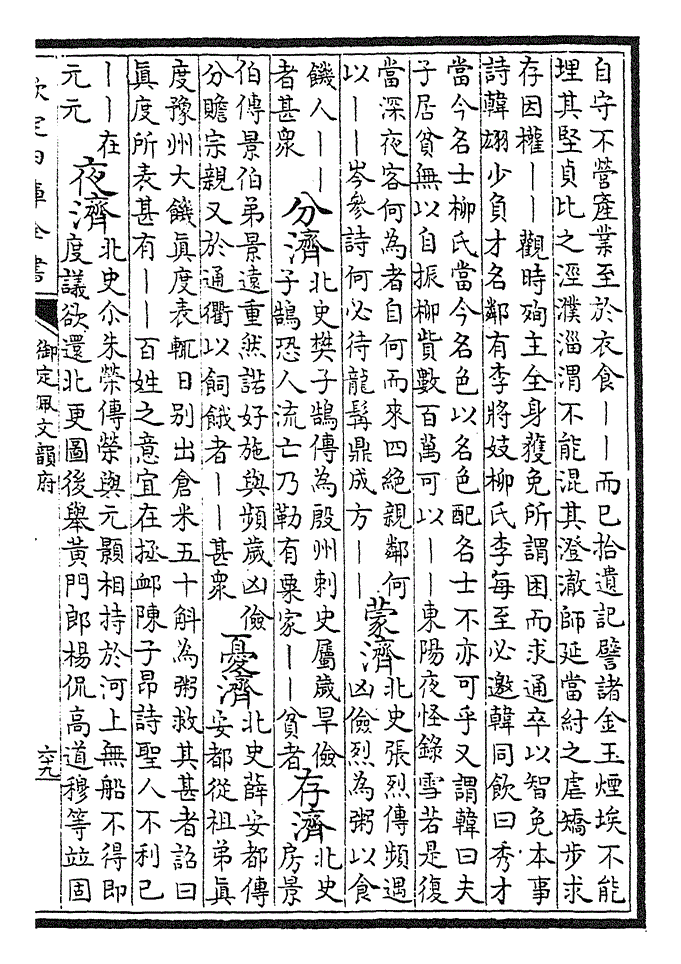 自守不營產業至於衣食——而已拾遺記譬諸金玉煙埃不能
埋其堅貞比之涇濮淄渭不能混其澄澈師延當紂之虐矯步求
存因權——觀時殉主全身獲免所謂困而求通卒以智免本事
詩韓翃少負才名鄰有李將妓柳氏李每至必邀韓同飲曰秀才
當今名士柳氏當今名色以名色配名士不亦可乎又謂韓曰夫
子居貧無以自振柳貲數百萬可以——東陽夜怪錄雪若是復
當深夜客何為者自何而來四絕親鄰何
以——岑參詩何必待龍髯鼎成方——
蒙濟
北史張烈傳頻遇
凶儉烈為粥以食
饑人——
者甚衆
分濟
北史樊子鵠傳為殷州刺史屬歲旱儉
子鵠恐人流亡乃勒有粟家——貧者
存濟
北史
房景
伯傳景伯弟景遠重然諾好施與頻歲凶儉
分贍宗親又於通衢以飼餓者——甚衆
憂濟
北史薛安都傳
安都從祖弟眞
度豫州大饑眞度表輒日別出倉米五十斛為粥救其甚者詔曰
眞度所表甚有——百姓之意宜在拯䘏陳子昂詩聖人不利已
——在
元元
夜濟
北史尒朱榮傳榮與元顥相持於河上無船不得即
度議欲還北更圖後舉黃門郎楊侃高道穆等並固
欽定四庫全書
御定佩文韻府
六十九